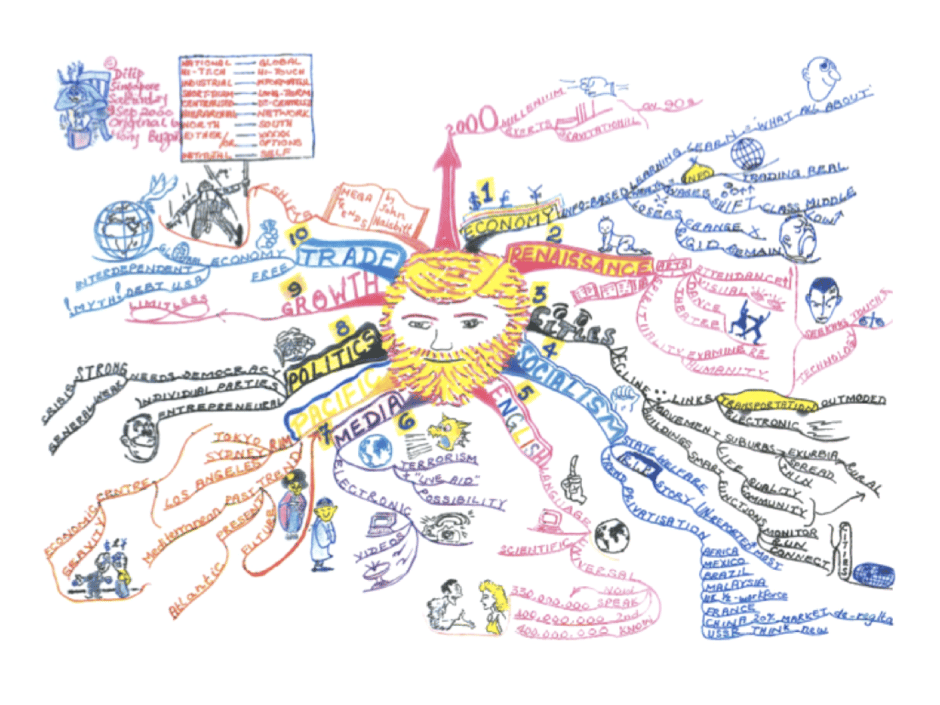 ©
Dilip
Singapore
Saturday
9 Sep 2000
Original by
Tony Buzan
NATIONAL — GLOBAL
HI-TECH — HI-TOUCH
INDUSTRIAL — INFORMATION
SHORT-TERM — LONG-TERM
CENTRALISED — DE-CENTRALISED
HIERARCHAL — NETWORK
NORTH — SOUTH
EITHER/OR — XXXXX OPTIONS
SELF
SHIFTS
MEGA TRENDS
by John Naisbitt
2000
MILLENIUM
ON 90s
1
$ £ ¥
ECONOMY
INFO-BASED
LEARNING LEARN
"WHAT ALL ABOUT"
INFO
TRADING REAL
SHIFT CLASS MIDDLE
LOSERS
REMAIN
2
RENAISSANCE
ARTS
ATTENDANCE↑
VISUAL
DANCE
THEATRE
SPIRITUALITY
EXAMINE RE
HUMANITY
TOUCH
TECHNOLOGY
3
CITIES
DECLINE
LINKS
TRANSPORTATION
OUTMODED
ELECTRONIC
MOVEMENT
SUBURBS
EXURBIA
RURAL
SPREAD
THIN
BUILDINGS SMART
LIFE
QUALITY
COMMUNITY
FUNCTIONS
MONITOR
RUN
CONNECT
CITIES
4
SOCIALISM
STATE WELFARE
STORY UNREPORTED MOST
PRIVATISATION
AFRICA
MEXICO
BRAZIL
MALAYSIA
UK ½-workforce
FRANCE
CHINA 20% MARKET
USSR THINK new
5
ENGLISH
LANGUAGE
SCIENTIFIC
UNIVERSAL
NOW
350,000,000 SPEAK
400,000,000 2nd
400,000,000 KNOW
6
MEDIA
TERRORISM
"LIVE AID"
POSSIBILITY
ELECTRONIC
VIDEOS
7
PACIFIC
TOKYO RIM
SYDNEY
LOS ANGELES
ECONOMIC
CENTRE
GRAVITY
TREND
PAST
Mediterranean
PRESENT
Atlantic
FUTURE
8
POLITICS
NEEDS DEMOCRACY
STRONG
CRISIS
GENERAL WEAK
INDIVIDUAL PARTIES
ENTREPRENEURIAL
9
GROWTH
LIMITLESS
10
TRADE
GLOBAL ECONOMY
FREE
INTERDEPENDENT
"MYTH" DEBT USA